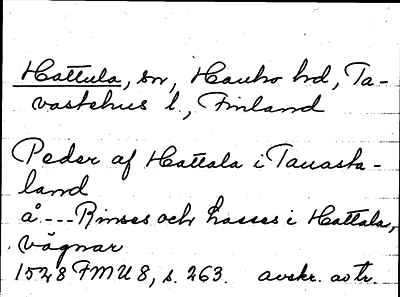 Hattula, sn, Hauho hd, Ta-
vastehus l., Finland
Peder af Hattala i Tauasta-
land
å --- Rinses och Lasses i Hattala,
vägnar
1528 FMU 8, s. 263. avskr. av tr.